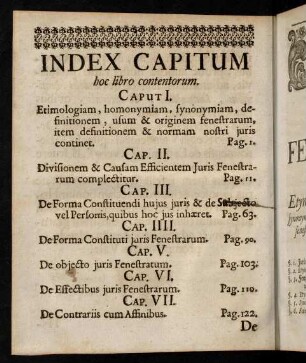 INDEX CAPITUM
hoc libro contentorum.
CAPUT I.
Etimologiam, homonymiam, synonymiam, de-
finitionem, usum & originem fenestrarum,
item definitionem & normam nostri juris
continet. Pag. 1.
CAP. II.
Divisionem & Causam Efficientem Juris Fenestra-
rum complectitur. Pag. 11.
CAP. III.
De Forma Constituendi hujus juris & de Subjecto
vel Personis, quibus hoc jus inhæret. Pag. 63.
CAP. IIII.
De Forma Constituti juris Fenestrarum. Pag. 90.
CAP. V.
De objecto juris Fenestratum. Pag. 103.
CAP. VI.
De Effectibus juris Fenestrarum. Pag. 110.
CAP. VII.
De Contrariis cum Affinibus. Pag. 122.
De
FE
Etym